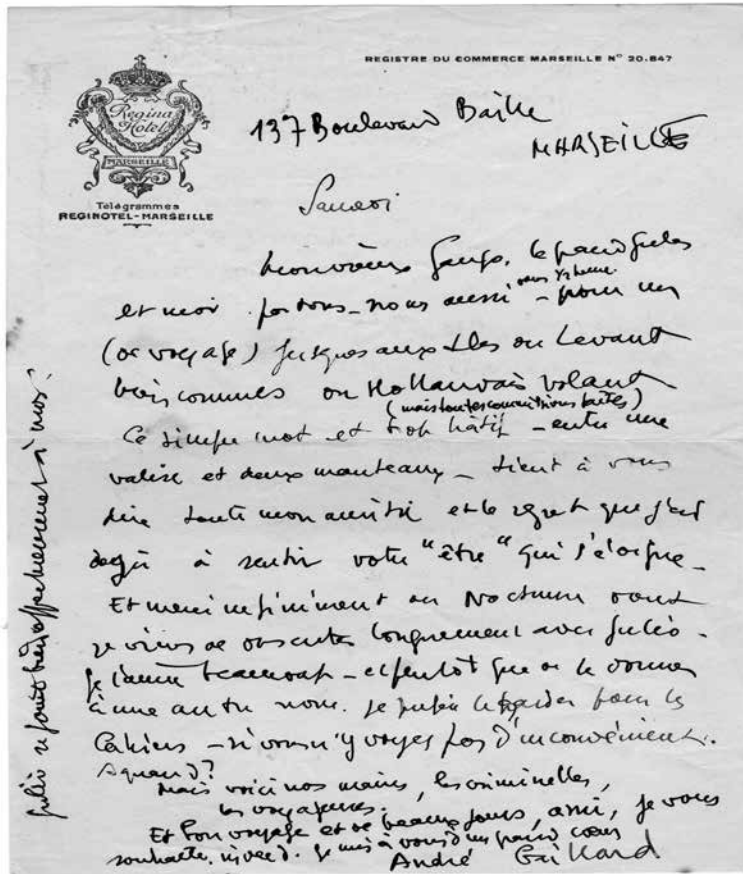 REGISTRE DU COMMERCE MARSEILLE Nº 20.847
Regina
Hotel
MARSEILLE
Télégrammes
REGINOTEL-MARSEILLE
137 Boulevard Baille
MARSEILLE
Samedi
Mon vieux
et moi partons-nous aussi - pour un
(de voyage) jusques aux Iles du Levant
du Hollandais volant
(mais toutes commissions faites)
Ce simple mot et trop hâtif - entre une
valise et deux manteaux - tient à vous
dire toute mon amitié et le regret que j'ai
déjà à sentir votre "être" qui s'éloigne -
Et merci infiniment du Nocturne dont
je viens de discuter longuement avec
je l'aime beaucoup - et plutôt que de le donner
à une autre je préfère le garder pour les
Cahiers - si vous n'y voyez pas d'inconvénient.
A quand ?
Mais voici nos mains, les criminelles,
les voyageuses.
Et bon voyage et de beaux jours, ami, je vous
souhaite. Je suis à vous d'un grand cœur
André Gaillard